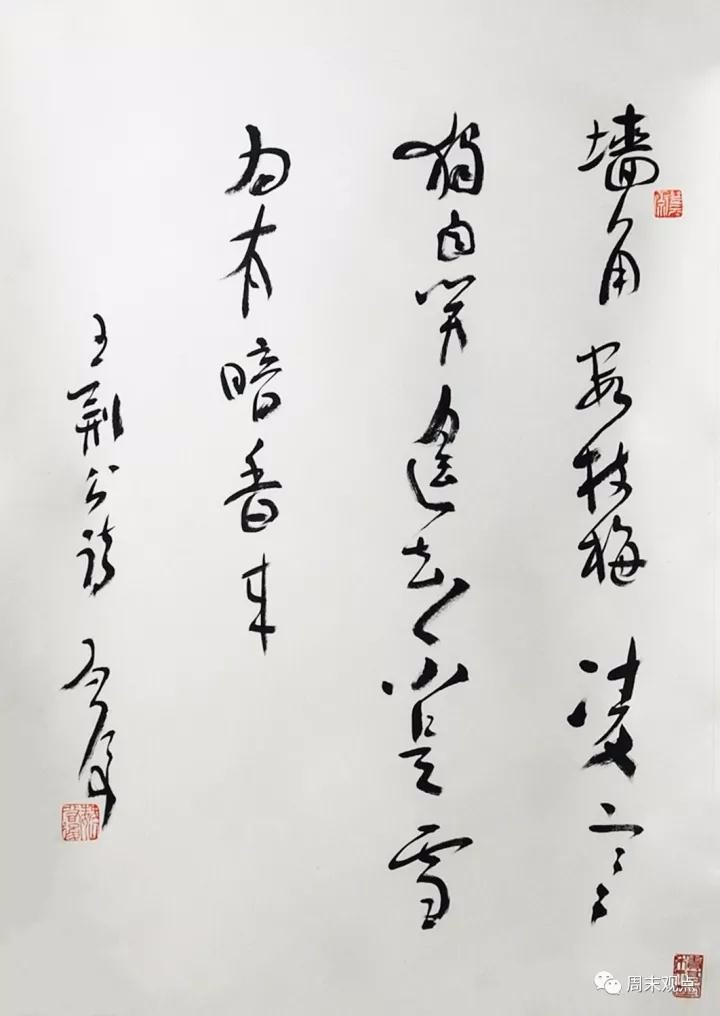 墙角数枝梅凌寒
独自开遥知不是雪
为有暗香来
王荆公诗
周末观点